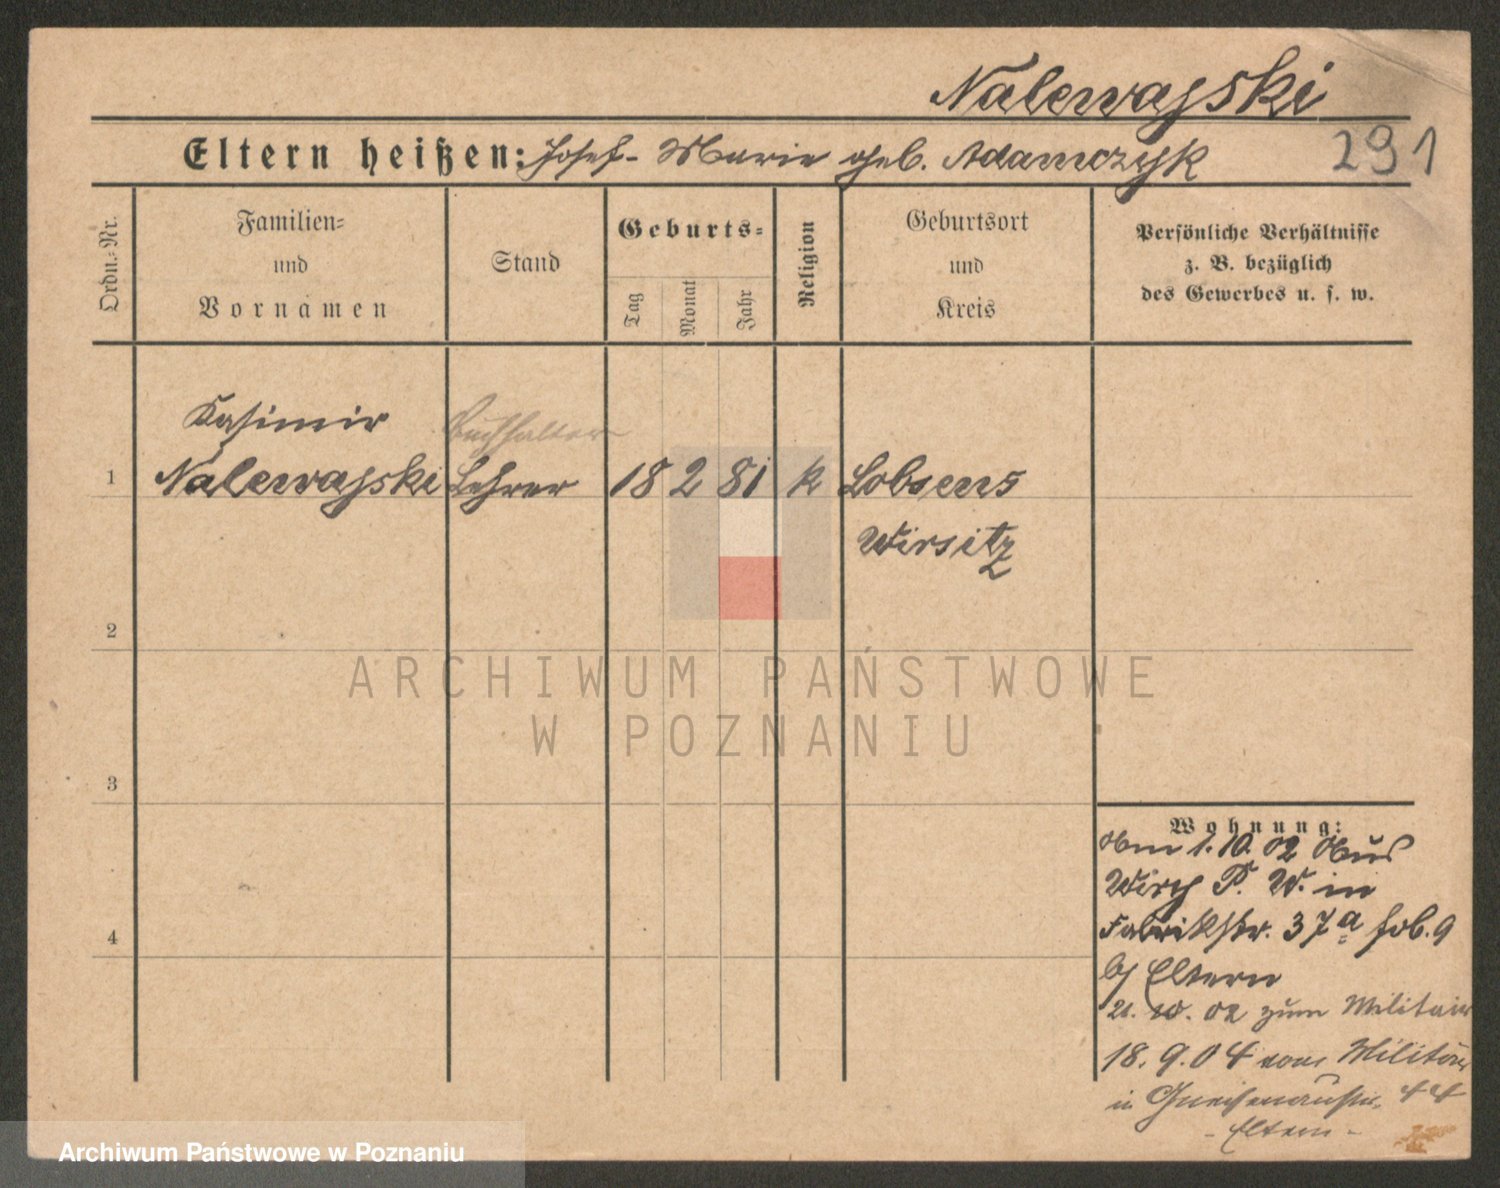 Nalewajski
Eltern heißen: Josef - Marie geb. Adamczyk
291
Ordn.-Nr.
Familien-
und
Vornamen
Stand
Geburts-
Tag
Monat
Jahr
Religion
Geburtsort
und
Kreis
Persönliche Verhältnisse
z. B. bezüglich
des Gewerbes u. s. w.
Kasimir Buchhalter
1 Nalewajski Lehrer 18 2 81 k Lobsens
Wirsitz
2
3
4
Wohnung:
1.10.02
P. W. in
Fabrikstr. 37a
b/ Eltern
21. 10. 02 zum Militair
18. 9. 04 vom Militär
in Gneisenaustr. 44
- Eltern -
ARCHIWUM PAŃSTWOWE
W POZNANIU
Archiwum Państwowe w Poznaniu